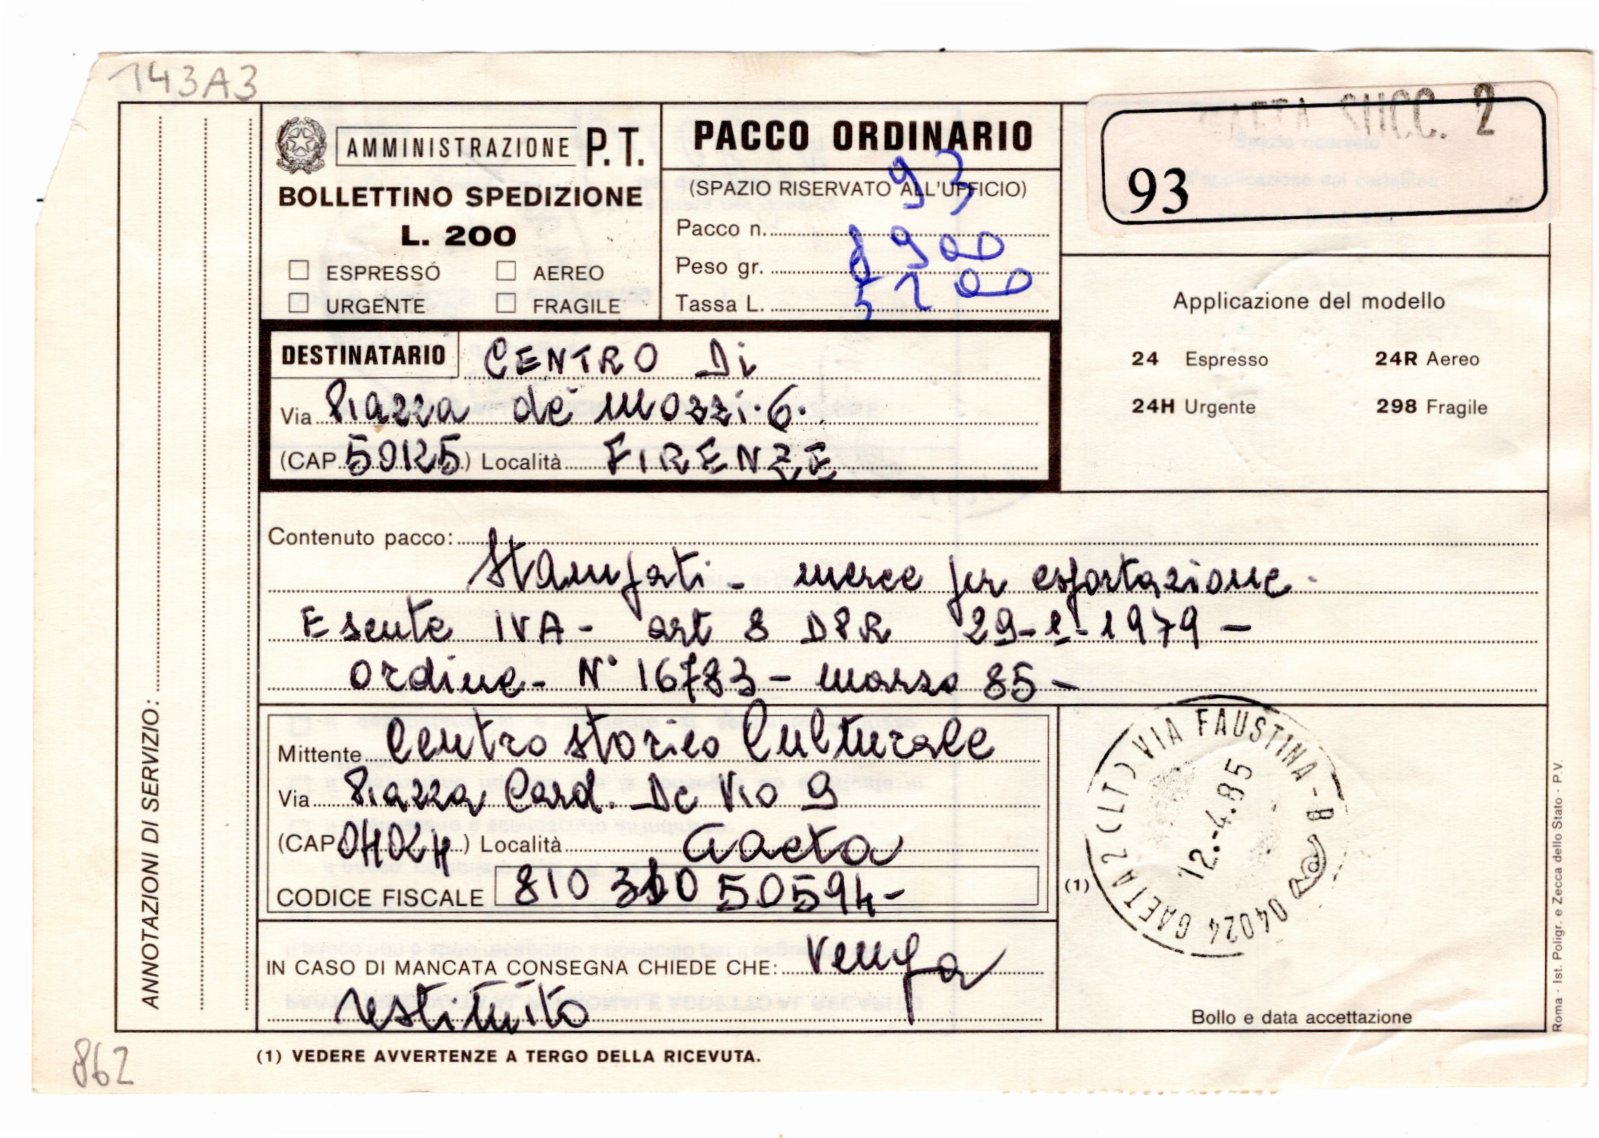 143A3
AMMINISTRAZIONE P.T.
BOLLETTINO SPEDIZIONE
L. 200
ESPRESSO AEREO
URGENTE FRAGILE
PACCO ORDINARIO
(SPAZIO RISERVATO ALL'UFFICIO)
Pacco n. 93
Peso gr. 1900
Tassa L. 5200
GAETA SUCC. 2
93
Applicazione del modello
24 Espresso 24R Aereo
24H Urgente 298 Fragile
DESTINATARIO CENTRO Di
Via Piazza de Mozzi. 6.
(CAP 50125) Località FIRENZE
Contenuto pacco:
Stampati - merce per esportazione.
Esente IVA - art 8 DPR 29-1-1979 -
Ordine - N° 16783 - marzo 85 -
Mittente Centro Storico Culturale
Via Piazza Card. De Vio 9
(CAP 04024) Località Gaeta
CODICE FISCALE 81031050594-
IN CASO DI MANCATA CONSEGNA CHIEDE CHE: venga
restituito
(1)
04024 GAETA 2 (LT) VIA FAUSTINA - B
12.-4.85
Bollo e data accettazione
ANNOTAZIONI DI SERVIZIO:
Roma - Ist. Poligr. e Zecca dello Stato - P.V.
862
(1) VEDERE AVVERTENZE A TERGO DELLA RICEVUTA.